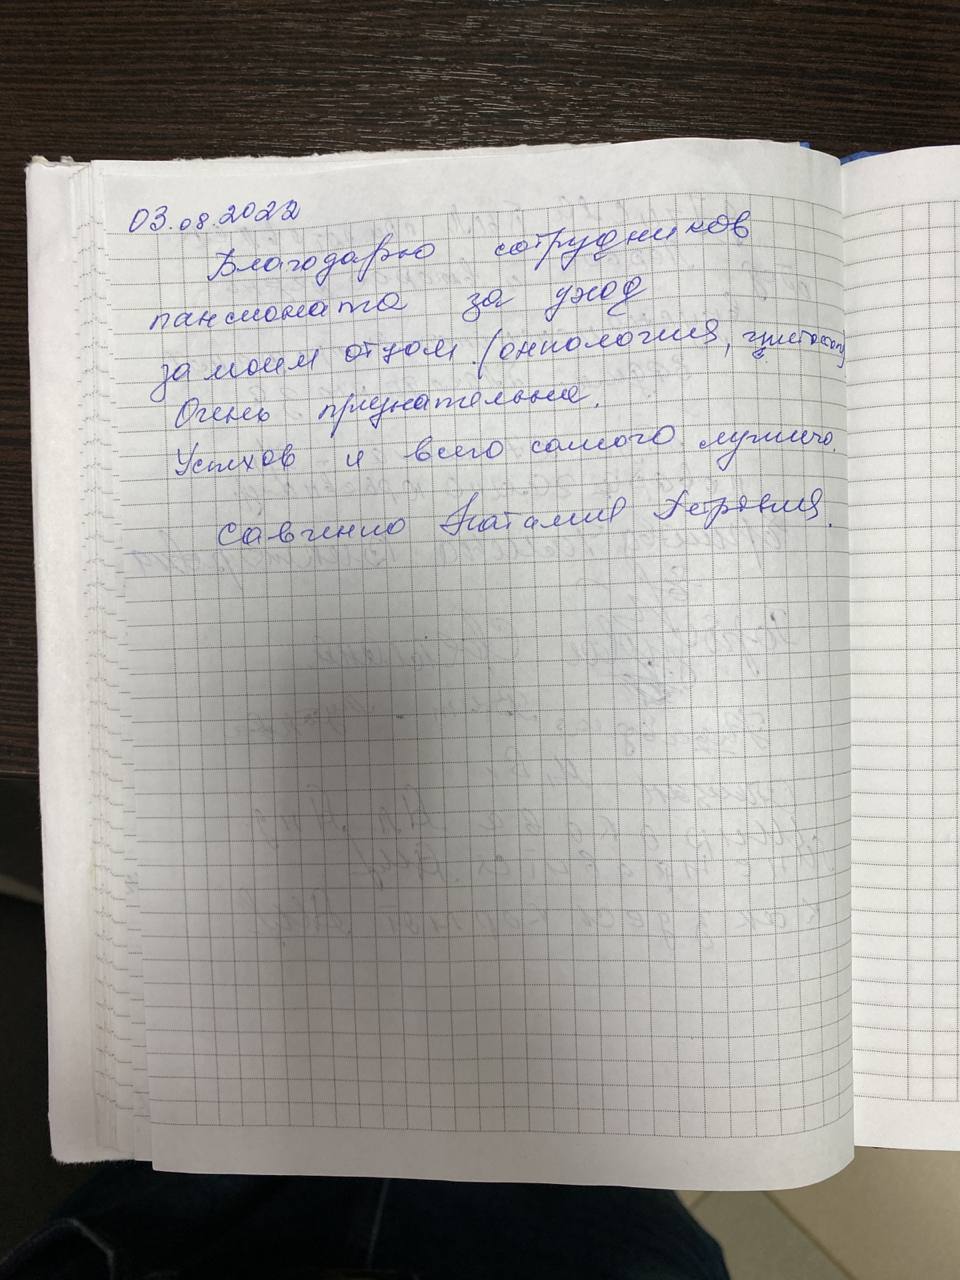 03.08.2022
Благодарю сотрудников
пансионата за уход
за моим отцом (онкология, цистостому)
Очень признательна.
Успхов и всего самого лучшего.
Савченко Наталия Петровна.